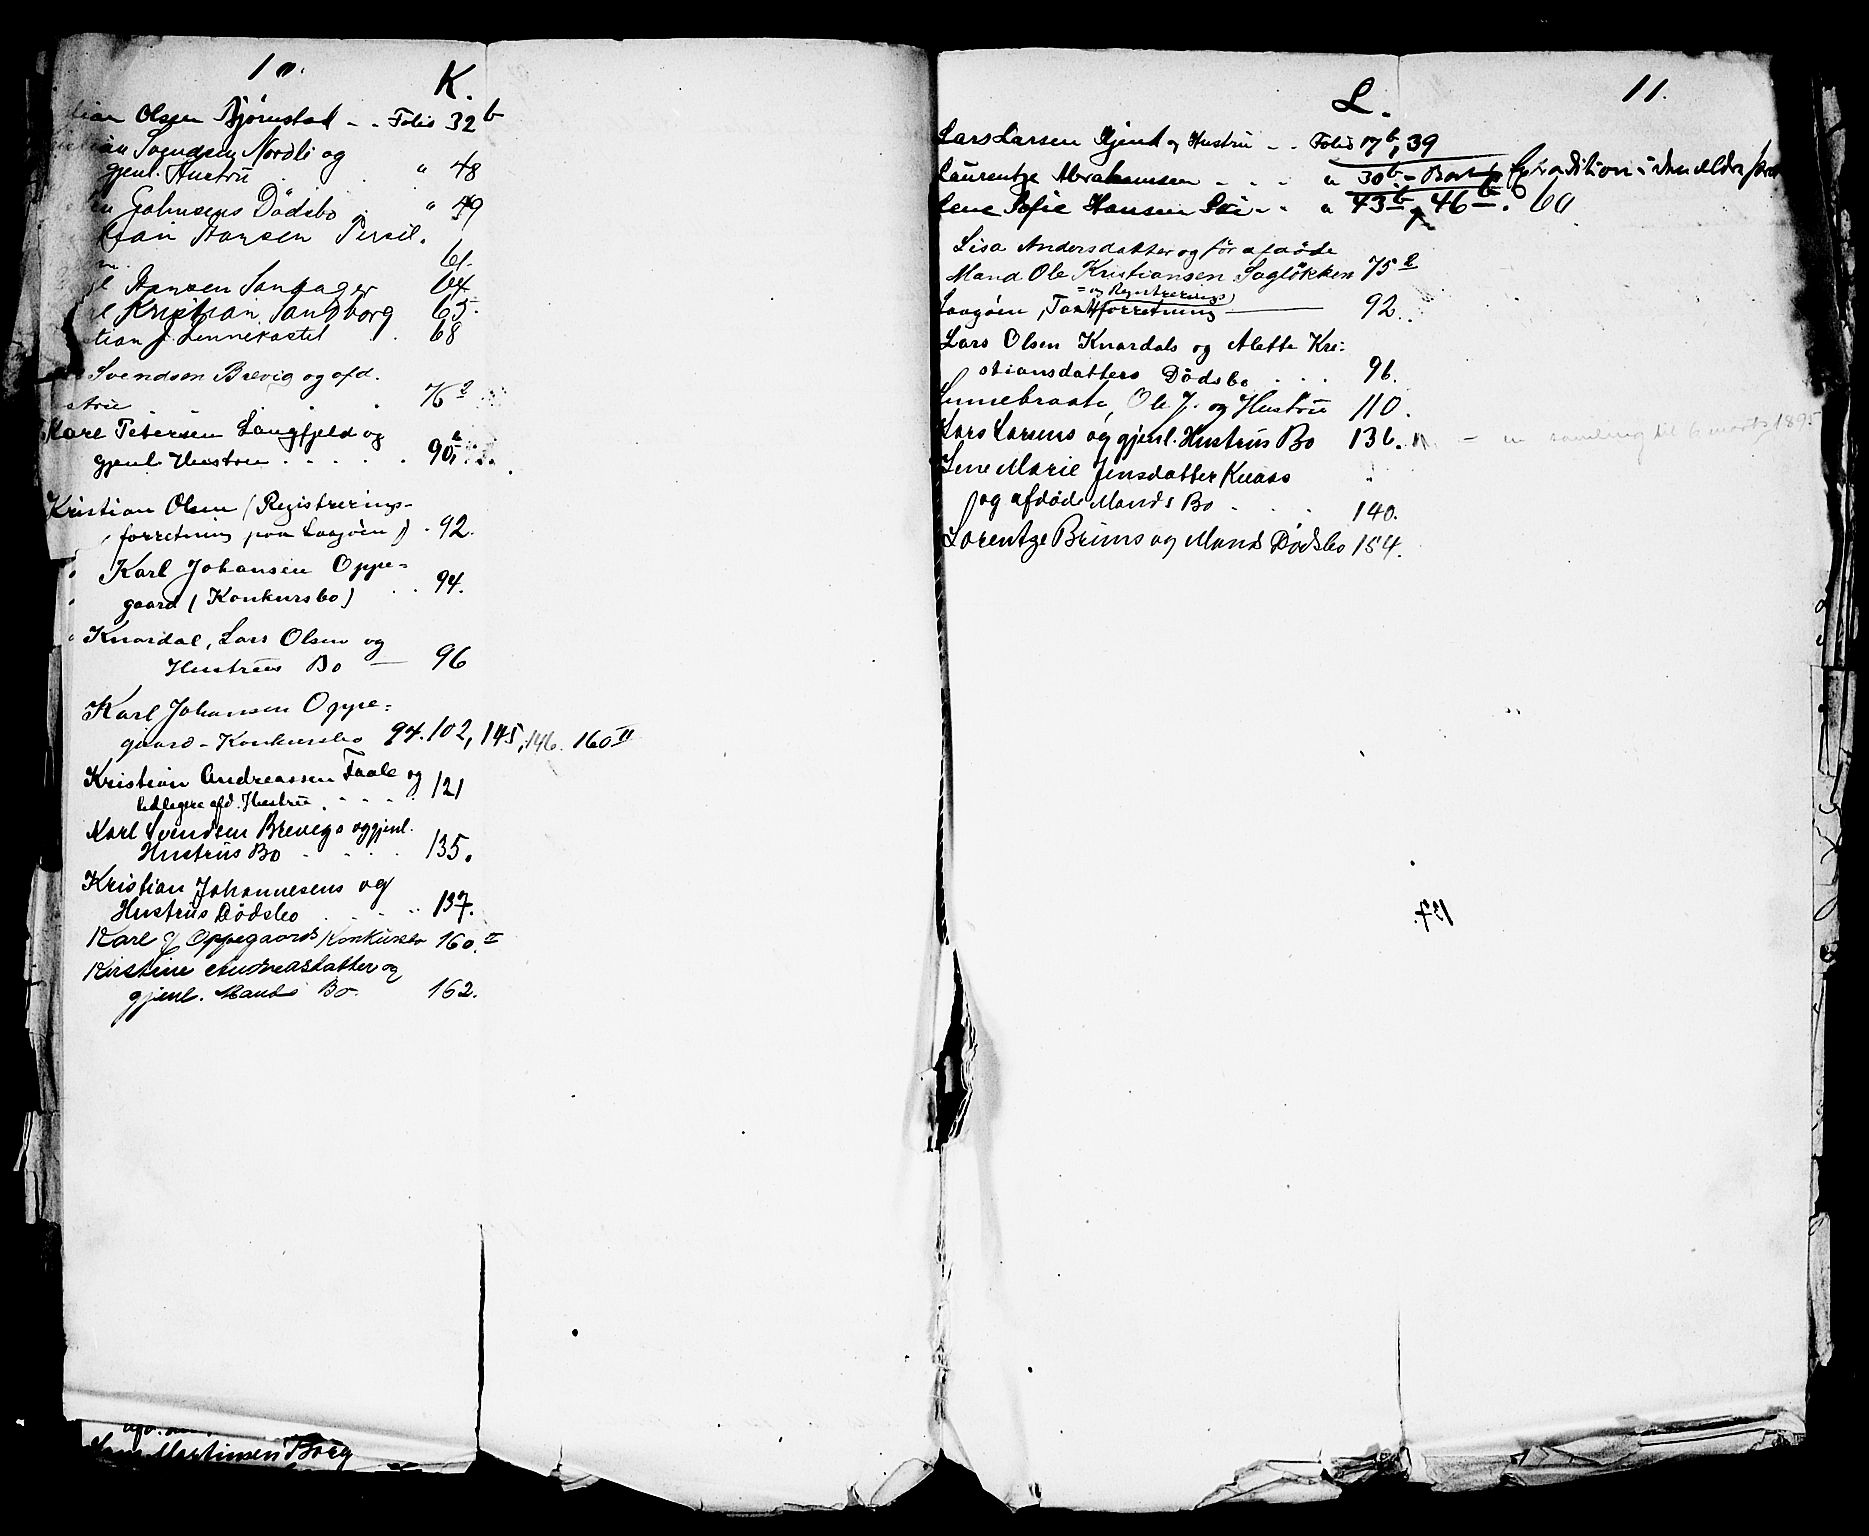 10.
K.
Olsen Bjørnstad - - Folio 32 b
Svendsen Nordli og
gjenl. Hustru " 48
Johnsens Dödsbo " 49
Hansen Persil.
61.
Hansen Sandager 64
Kristian Sandborg 65.
tian J. Sennerøstet . 68
Svendsen Brevig og afd.
76 a
Karl Petersen Langfjeld og
gjenl. Hustru . . . . . 90 a
Kristian Olsen (Registrerings-
forretning paa Langøen) . 92.
Karl Johansen Oppe=
gaard (Konkursbo) . . 94.
Knardal, Lars Olsen og
Hustrues Bo — 96
Karl Johansen Oppe=
gaard - Konkursbo 94. 102, 145, 146. 160 II
Kristian Andreassen Taale og
tidligere afd. Hustru . . . . . 121
Karl Svendsen Brevegs og gjenl.
Hustrus Bo . . . . 135.
Kristian Johannesens og
Hustrus Dödsbo . . . . 137.
Karl J Oppegaards Konkursbo 160. II
Kirstine Andreasdatter og
gjenl. Mands Bo. 162.
Hans Martinsen Borg
11.
L.
Lars Larsen Gjend og Hustru - - Folio 17 b, 39
Laurentze Abrahamsen - - - " 30 b - Bort Expedition i den ældre
Lene Sofie Hansen Ski - - " 43 b, 46 b. 60
Lisa Andersdatter og før afdöde
Mand Ole Kristiansen Saglökken 75 a
= og Registrerings
Langøen, Taxtforretning — 92.
Lars Olsen Knardals og Alette Kri=
stiansdatters Dödsbo . . . 96.
Linnebraate, Ole J. og Hustru 110.
Lars Larsens og gjenl. Hustrus Bo 136. - en samling til 6 marts 1895
Lene Marie Jensdatter Knass
og afdöde Mands Bo . . . 140.
Lorentze Bruns og Mands Dödsbo 154.
137.